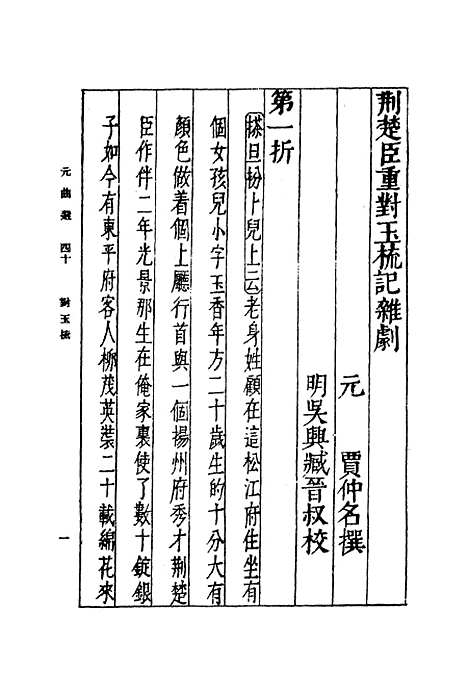 荆楚臣重對玉梳記雜劇
元　賈仲名撰
明吳興臧晉叔校
第一折
搽旦扮卜兒上云老身姓顧在這松江府住坐有
個女孩兒小字玉香年方二十歲生的十分大有
顏色做着個上廳行首與一個揚州府秀才荆楚
臣作伴二年光景那生在俺家裏使了數十錠銀
子如今有東平府客人柳茂英裝二十載綿花來
元曲選　四十　對玉梳
一